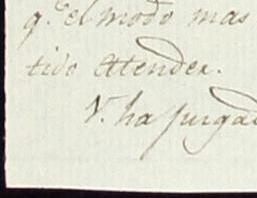 q.e el modo mas
tido atender.
V. ha juzgad